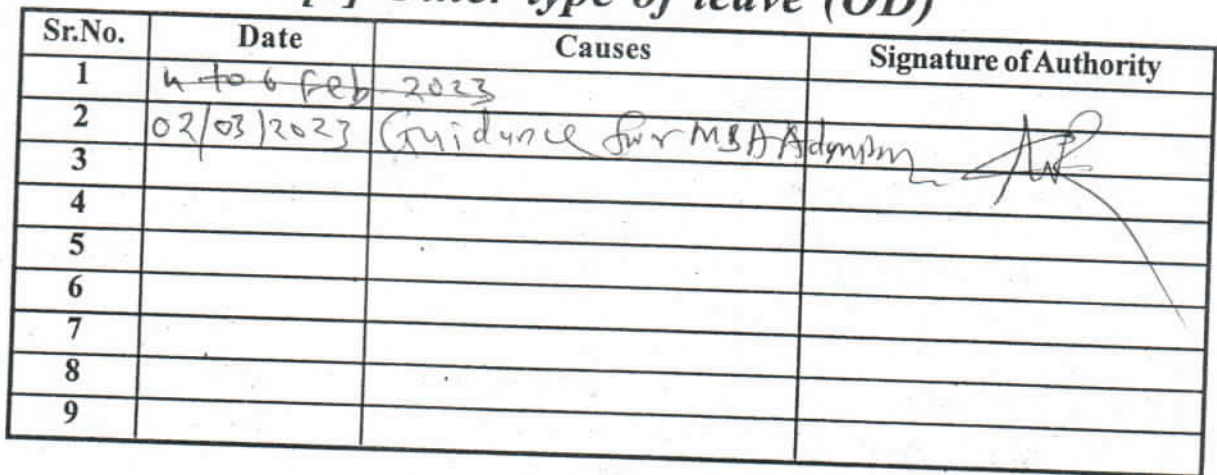 Other type of leave (OD)
Sr.No. Date Causes Signature of Authority
1 4 to 6 Feb 2023
2 02/03/2023 Guidance for MBA
3
4
5
6
7
8
9